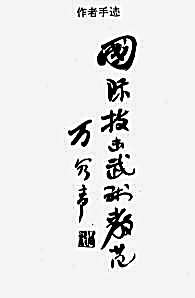 作者手迹
国际技击武术教范
万